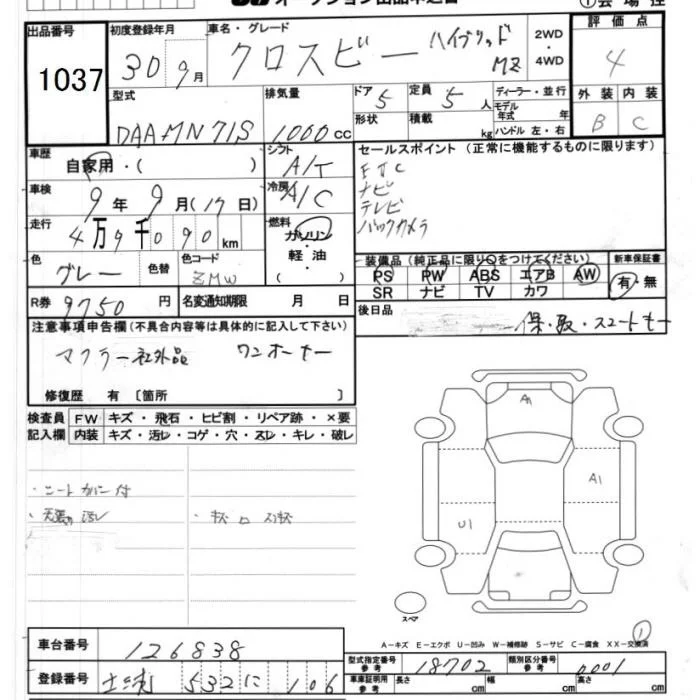 オークション出品申込書 ①会場控
出品番号 初度登録年月 車名・グレード 評価点
1037 30 9月 クロスビー ハイブリッド MZ 2WD・4WD 4
型式 排気量 ドア 5 定員 5人 ディーラー・並行 外装 内装
DAA MN71S 1000cc 形状 積載 kg モデル年式 年 ハンドル 左・右 B C
車歴 シフト セールスポイント (正常に機能するものに限ります)
自家用・( ) A/T ETC
車検 冷房 ナビ
9年 9月(17日) A/C テレビ
走行 燃料 バックカメラ
4万9千090km ガソリン・軽油・( ) 装備品(純正品に限り○をつけてください) 新車保証書
色 色替 色コード PS PW ABS エアB AW 有・無
グレー ZMW SR ナビ TV カワ
R券 9750円 名変通知期限 月 日 後日品
注意事項申告欄(不具合内容等は具体的に記入して下さい) 保・取・スマートキー
マフラー社外品 ワンオーナー
修復歴 有〔箇所 〕
検査員 FW キズ・飛石・ヒビ割・リペア跡・×要
記入欄 内装 キズ・汚レ・コゲ・穴・スレ・キレ・破レ
A1
・シートカバー付 A1
・天張り汚レ
U1
スペア
①
A-キズ E-エクボ U-凹み W-補修跡 S-サビ C-腐食 XX-交換済
車台番号 126838
型式指定番号 参考 18702 類別区分番号 参考 0001
登録番号 532に 106
車庫証明用 参考 長さ cm 幅 cm 高さ cm